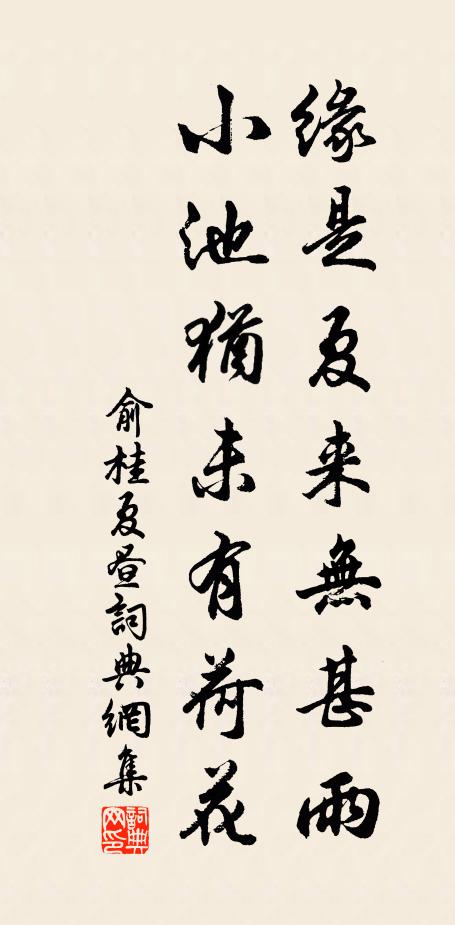 緣是夏来無甚雨
小池猶未有荷花
俞桂夏昼詞典網集
詞典网印